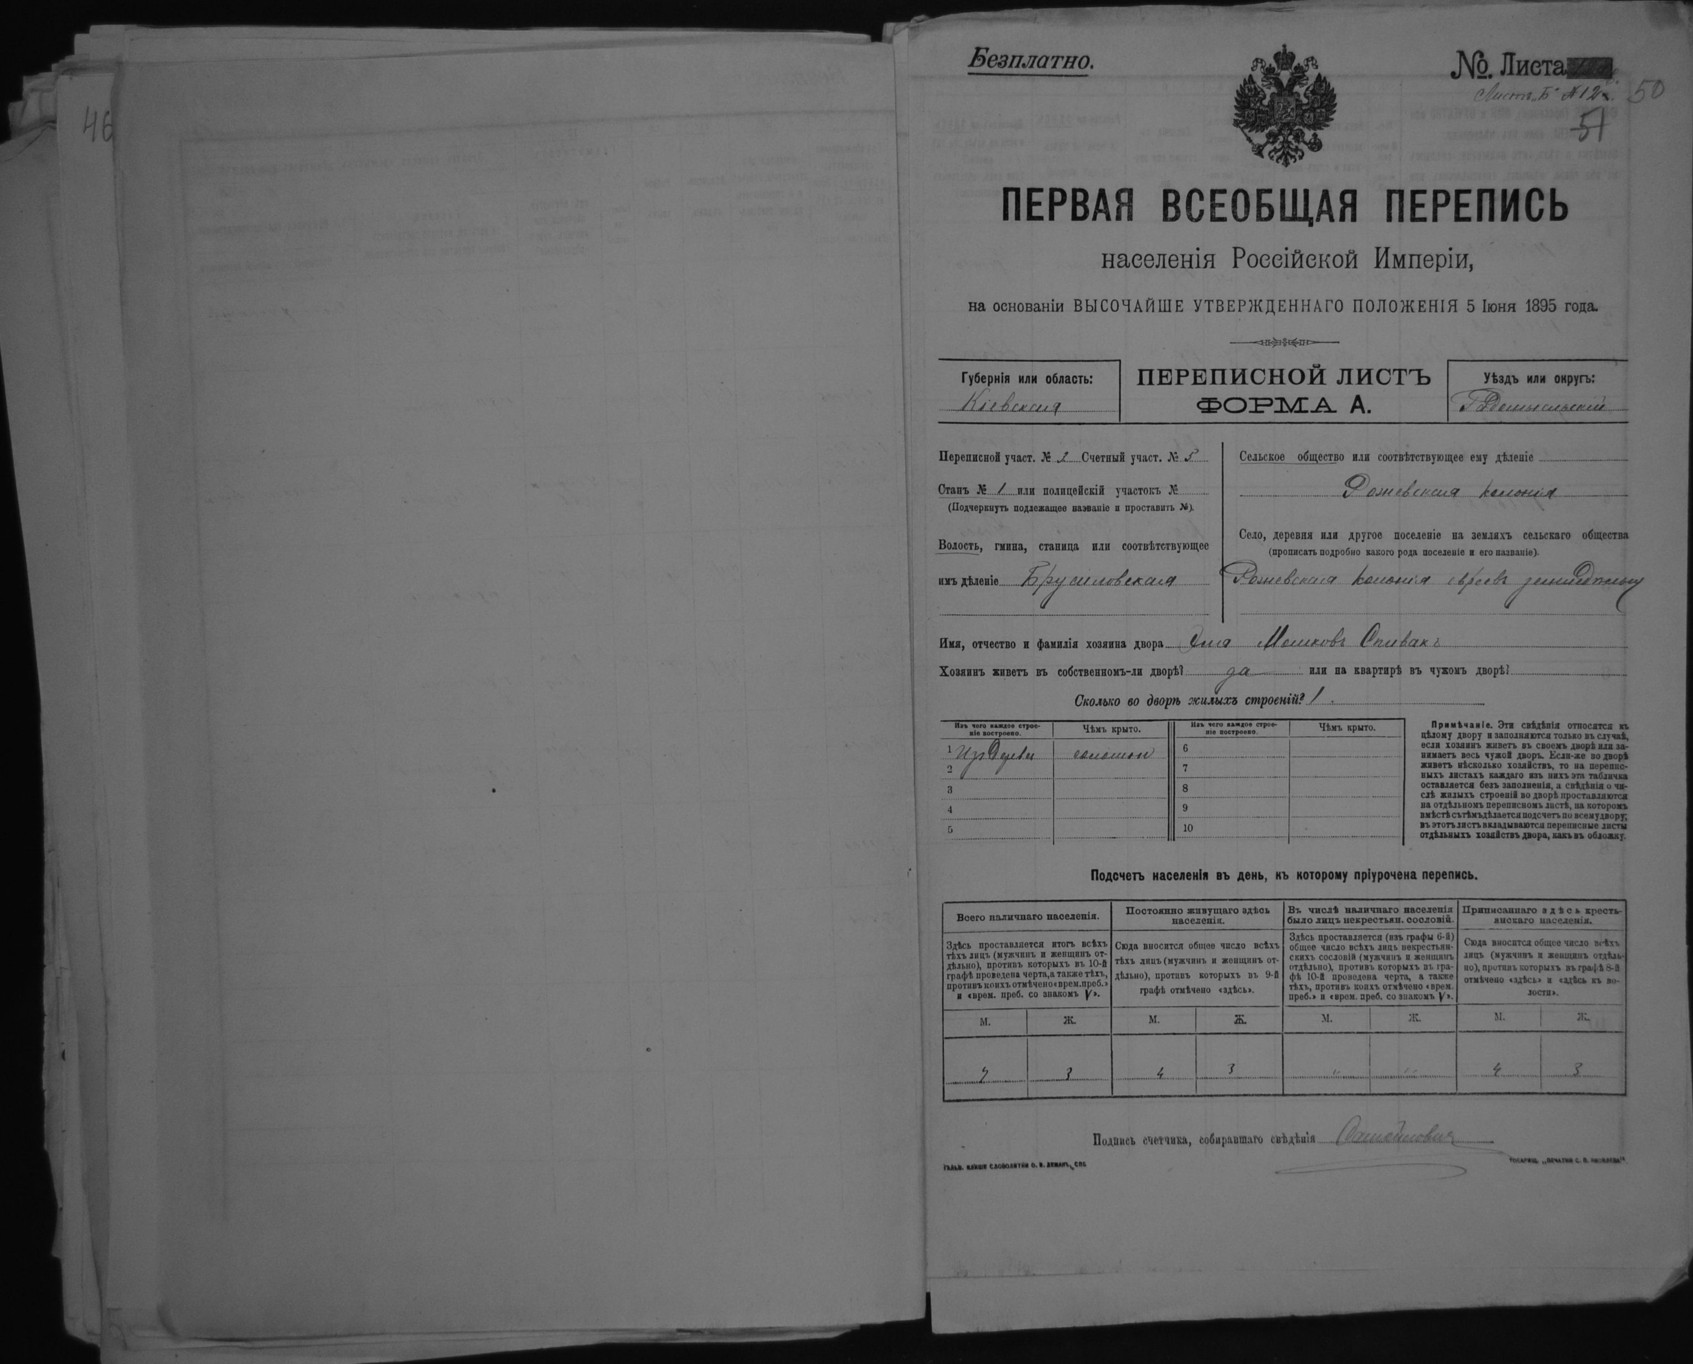 46
Безплатно.
№. Листа
Листъ „Б“ №12
50
51
ПЕРВАЯ ВСЕОБЩАЯ ПЕРЕПИСЬ
населенія Россійской Имперіи,
на основаніи ВЫСОЧАЙШЕ УТВЕРЖДЕННАГО ПОЛОЖЕНІЯ 5 Іюня 1895 года.
Губернія или область:
Кіевская
ПЕРЕПИСНОЙ ЛИСТЪ
ФОРМА А.
Уѣздъ или округъ:
Радомысльскій
Переписной участ. № 2 Счетный участ. № 5
Станъ № 1 или полицейскій участокъ №
(Подчеркнуть подлежащее названіе и проставить №).
Волость, гмина, станица или соотвѣтствующее
имъ дѣленіе Брусиловская
Сельское общество или соотвѣтствующее ему дѣленіе
Рожевская колонія
Село, деревня или другое поселеніе на земляхъ сельскаго общества
(прописать подробно какого рода поселеніе и его названіе).
Рожевская колонія евреевъ
Имя, отчество и фамилія хозяина двора Мошковъ Спивакъ
Хозяинъ живетъ въ собственномъ-ли дворѣ? да или на квартирѣ въ чужомъ дворѣ?
Сколько во дворѣ жилыхъ строеній? 1.
Изъ чего каждое строеніе построено.
Чѣмъ крыто.
Изъ чего каждое строеніе построено.
Чѣмъ крыто.
1 Изъ дерева соломой
2
3
4
5
6
7
8
9
10
Примѣчаніе. Эти свѣдѣнія относятся къ
цѣлому двору и заполняются только въ случаѣ,
если хозяинъ живетъ въ своемъ дворѣ или за-
нимаетъ весь чужой дворъ. Если-же во дворѣ
живетъ нѣсколько хозяйствъ, то на перепис-
ныхъ листахъ каждаго изъ нихъ эта табличка
оставляется безъ заполненія, а свѣдѣнія о чи-
слѣ жилыхъ строеній во дворѣ проставляются
на отдѣльномъ переписномъ листѣ, на которомъ
вмѣстѣ съ тѣмъ дѣлается подсчетъ по всему двору;
въ этотъ листъ вкладываются переписные листы
отдѣльныхъ хозяйствъ двора, какъ въ обложку.
Подсчетъ населенія въ день, къ которому пріурочена перепись.
Всего наличнаго населенія.
Здѣсь проставляется итогъ всѣхъ
тѣхъ лицъ (мужчинъ и женщинъ от-
дѣльно), противъ которыхъ въ 10-й
графѣ проведена черта, а также тѣхъ,
противъ коихъ отмѣчено «врем. преб.»
и «врем. преб. со знакомъ V».
Постоянно живущаго здѣсь
населенія.
Сюда вносится общее число всѣхъ
тѣхъ лицъ (мужчинъ и женщинъ от-
дѣльно), противъ которыхъ въ 9-й
графѣ отмѣчено «здѣсь».
Въ числѣ наличнаго населенія
было лицъ некрестьян. сословій.
Здѣсь проставляется (изъ графы 6-й)
общее число всѣхъ лицъ некрестьян-
скихъ сословій (мужчинъ и женщинъ
отдѣльно), противъ которыхъ въ гра-
фѣ 10-й проведена черта, а также
тѣхъ, противъ коихъ отмѣчено «врем.
преб.» и «врем. преб. со знакомъ V».
Приписаннаго здѣсь кресть-
янскаго населенія.
Сюда вносится общее число всѣхъ
лицъ (мужчинъ и женщинъ отдѣль-
но), противъ которыхъ въ графѣ 8-й
отмѣчено «здѣсь» и «здѣсь къ во-
лости».
М. Ж. М. Ж. М. Ж. М. Ж.
3 4 3 „ „ 4 3
Подпись счетчика, собиравшаго свѣдѣнія
ГАЛЬВ. КЛИШЕ СЛОВОЛИТНИ О. И. ЛЕМАНЪ, СПБ.
ТОВАРИЩ. „ПЕЧАТНЯ С. П. ЯКОВЛЕВА“.